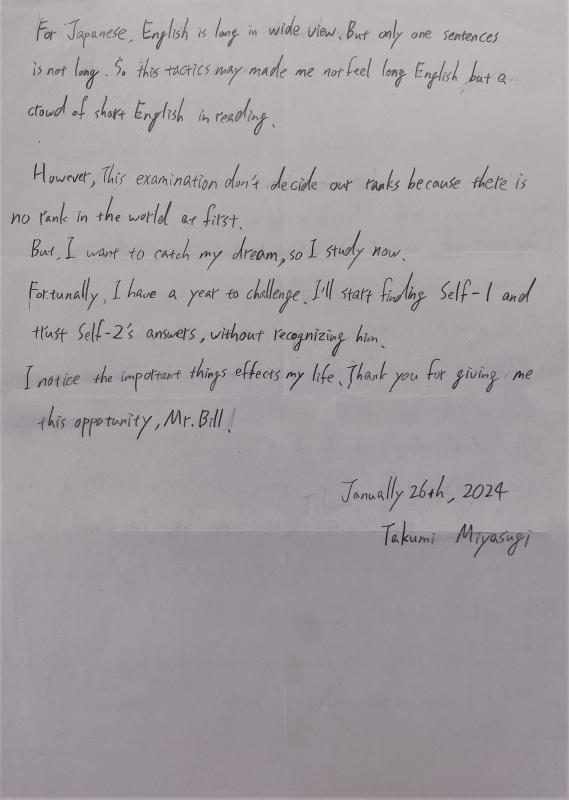 For Japanese, English is long in wide view. But only one sentences
is not long. So this tactics may made me not feel long English but a
crowd of short English in reading.
However, This examination don't decide our ranks because there is
no rank in the world at first.
But, I want to catch my dream, so I study now.
Fortunally, I have a year to challenge. I'll start finding Self-1 and
trust Self-2's answers, without recognizing him.
I notice the important things effects my life. Thank you for giving me
this oppotunity, Mr. Bill!
Janually 26th, 2024
Takumi Miyasugi